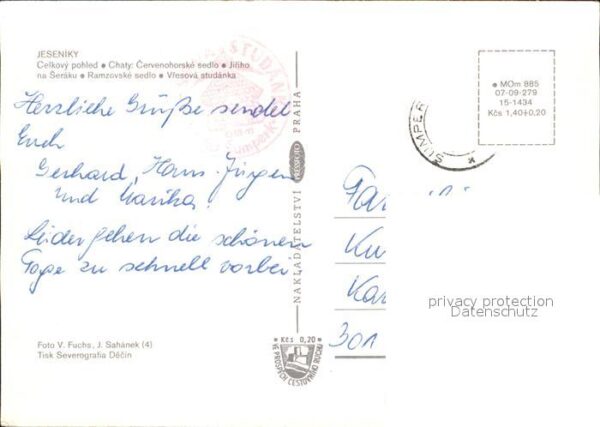 JESENÍKY
Celkový pohled ● Chaty: Červenohorské sedlo ● Jiřího
na Šeráku ● Ramzovské sedlo ● Vřesová studánka
Herzliche Grüße sendet
Euch
Gerhard, Hans-Jürgen
und Marika!
Leider gehen die schönen
Tage zu schnell vorbei
Foto V. Fuchs, J. Sahánek (4)
Tisk Severografia Děčín
NAKLADATELSTVÍ PRESSFOTO PRAHA
STUDÁN
Kčs 0,20
VE PROSPĚCH CESTOVNÍHO RUCHU
● MOm 885
07-09-279
15-1434
Kčs 1,40+0,20
ŠUMPER
Fa
Ku
Ka
301
privacy protection
Datenschutz